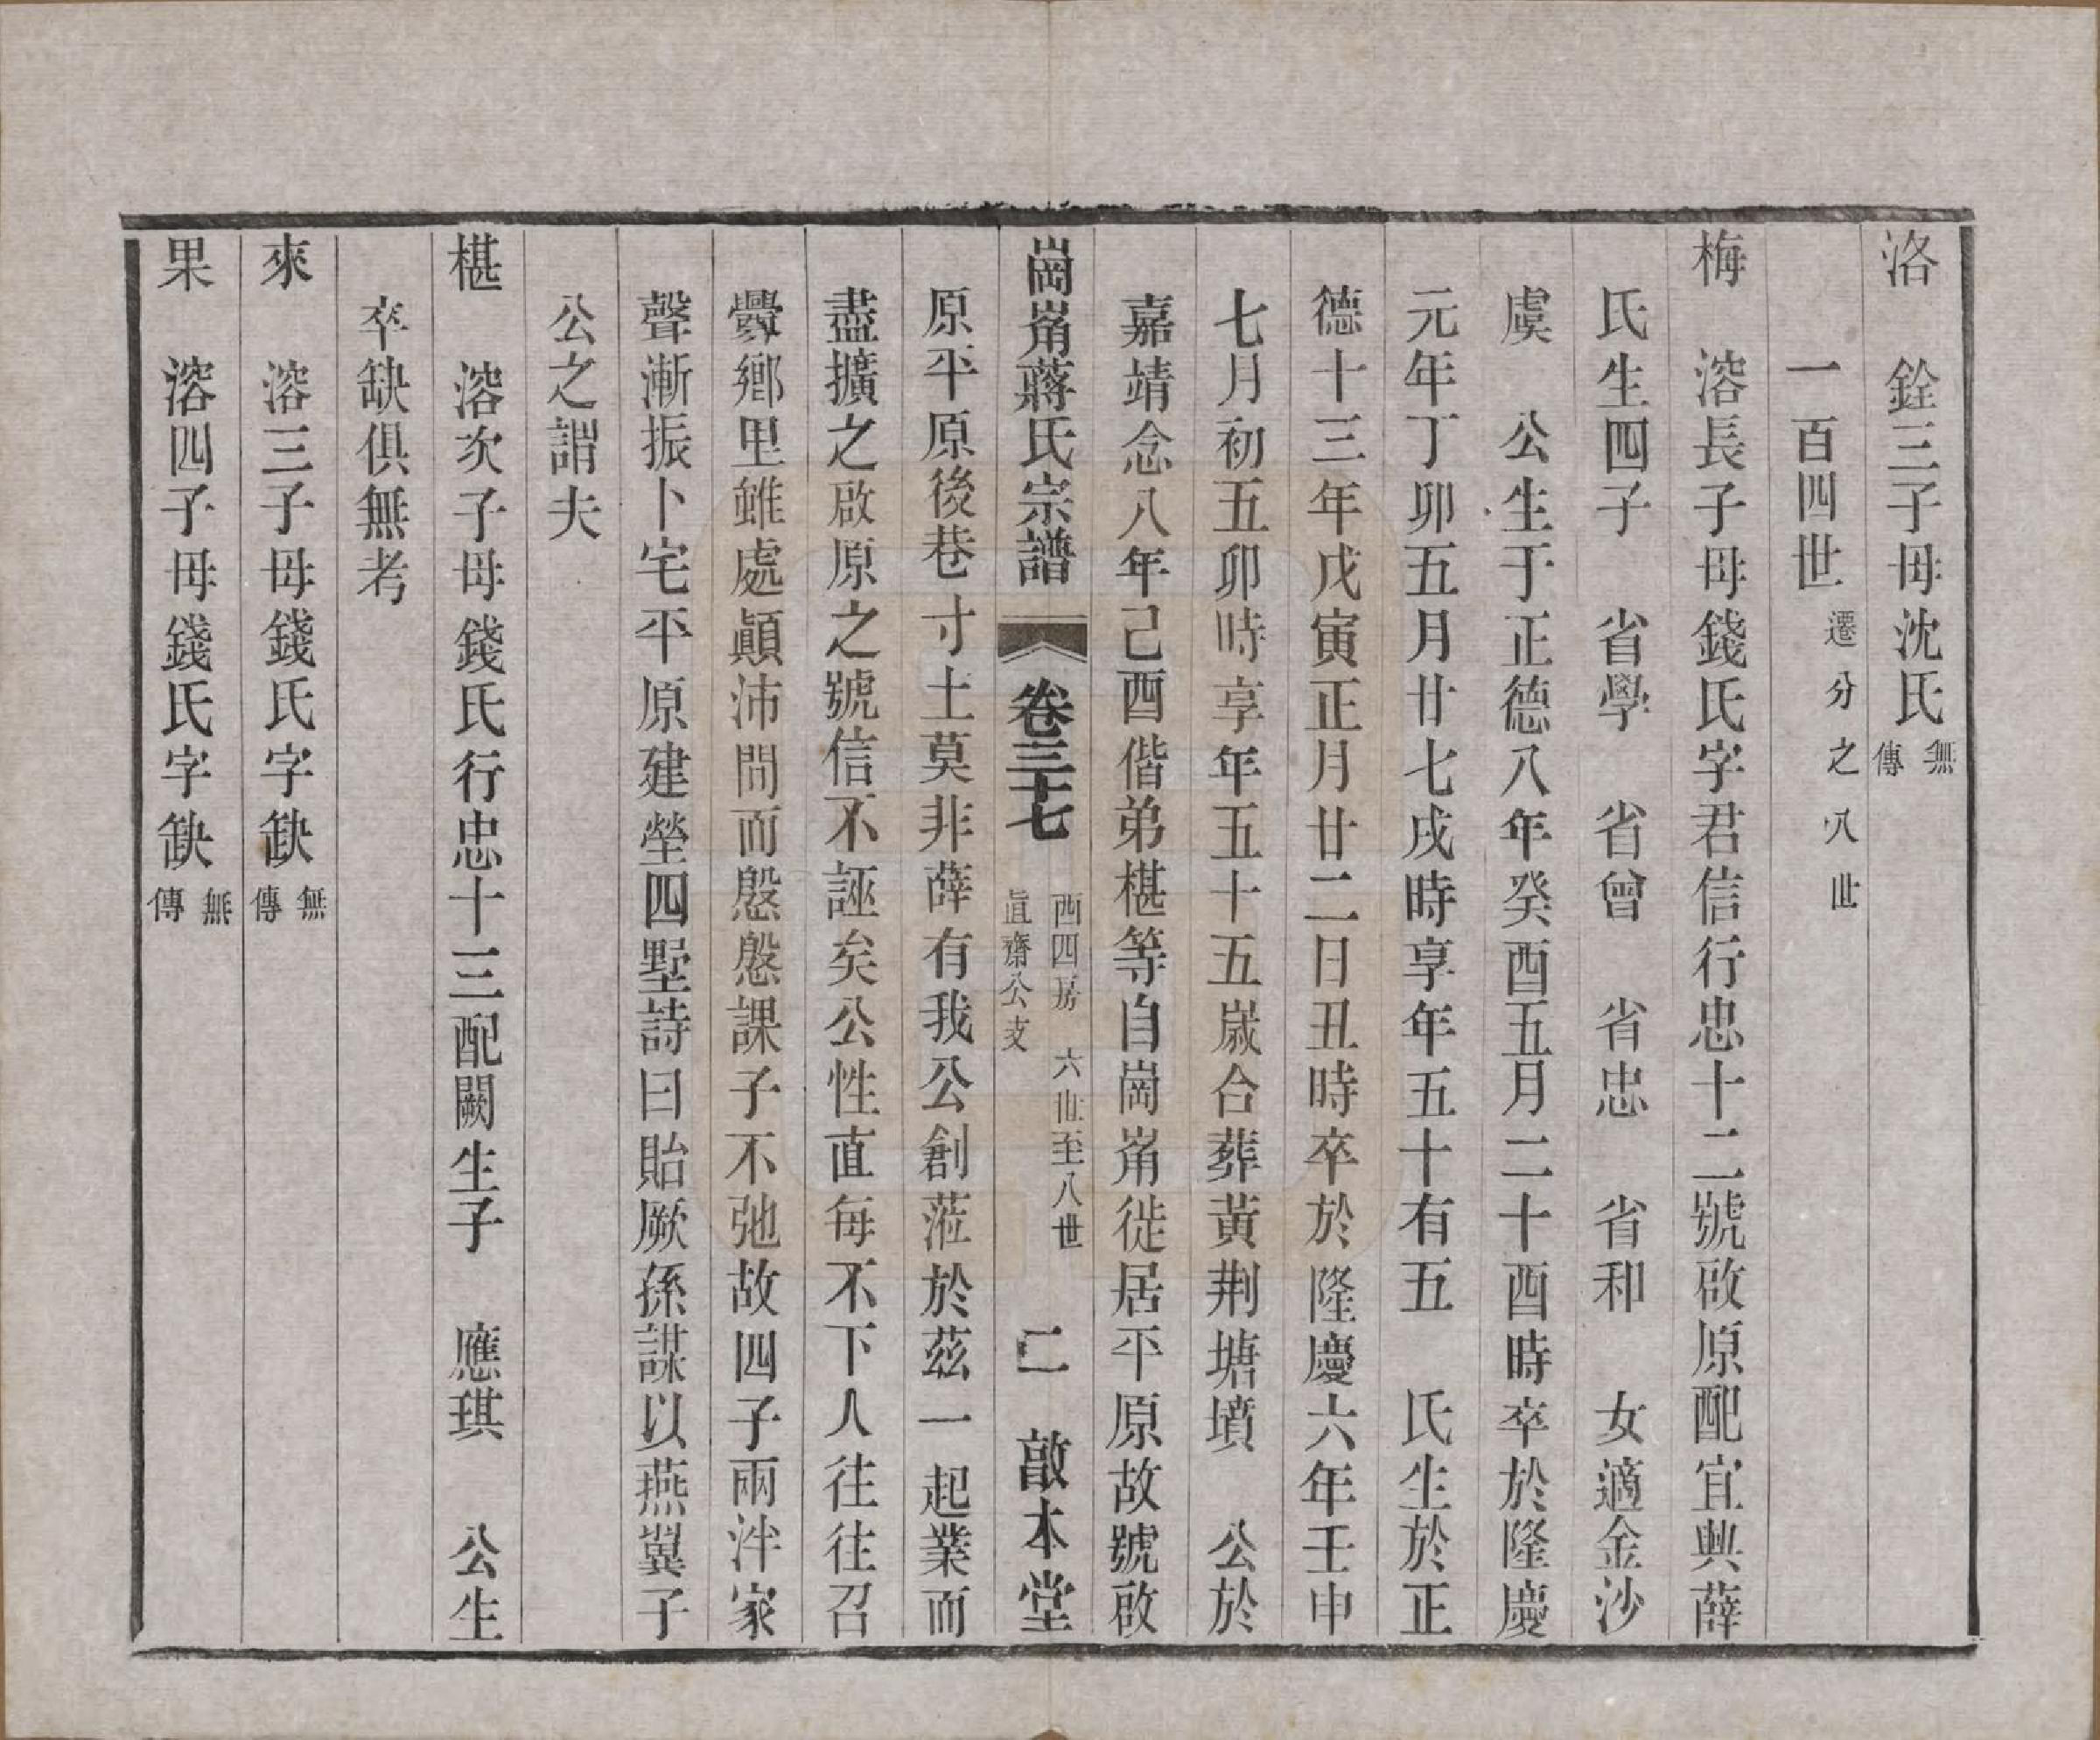 洛　銓三子母沈氏無傳
一百四世遷分之八世
梅　溶長子母錢氏字君信行忠十二號啟原配宜興薛
氏生四子　省學　省曾　省忠　省和　女適金沙
虞　公生于正德八年癸酉五月二十酉時卒於隆慶
元年丁卯五月廿七戌時享年五十有五　氏生於正
德十三年戊寅正月廿二日丑時卒於隆慶六年壬申
七月初五卯時享年五十五歲合葬黃荆塘墳　公於
嘉靖念八年己酉偕弟椹等自崗崗徙居平原故號啟
崗崗蔣氏宗譜　卷三十七　西四房　六世至八世　直齋公支　二　敵本堂
原平原後巷寸土莫非薛有我公創蒞於茲一起業而
盡擴之啟原之號信不誣矣公性直每不下人往往召
釁鄉里雖處顚沛問而慇慇課子不弛故四子兩泮家
聲漸振卜宅平原建塋四墅詩曰貽厥孫謀以燕翼子
公之謂夫
椹　溶次子母錢氏行忠十三配闕生子　應琪　公生
卒缺俱無考
來　溶三子母錢氏字缺無傳
果　溶四子母錢氏字缺無傳